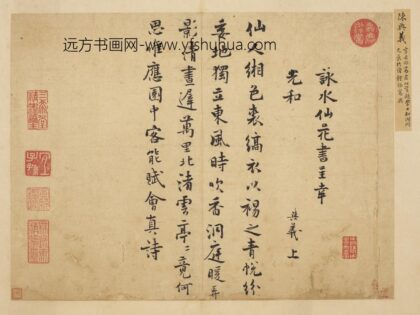 远方书画网-www.yfshuhua.com
陳與義
詠水仙花書呈幸
光和
與義上
仙人緗色裘縞衣以裼之青帨紛
委地獨立東風時吹香洞庭暖弄
影清晝遲萬里北渚雲亭〻竟何
思誰應園中客能賦會真詩